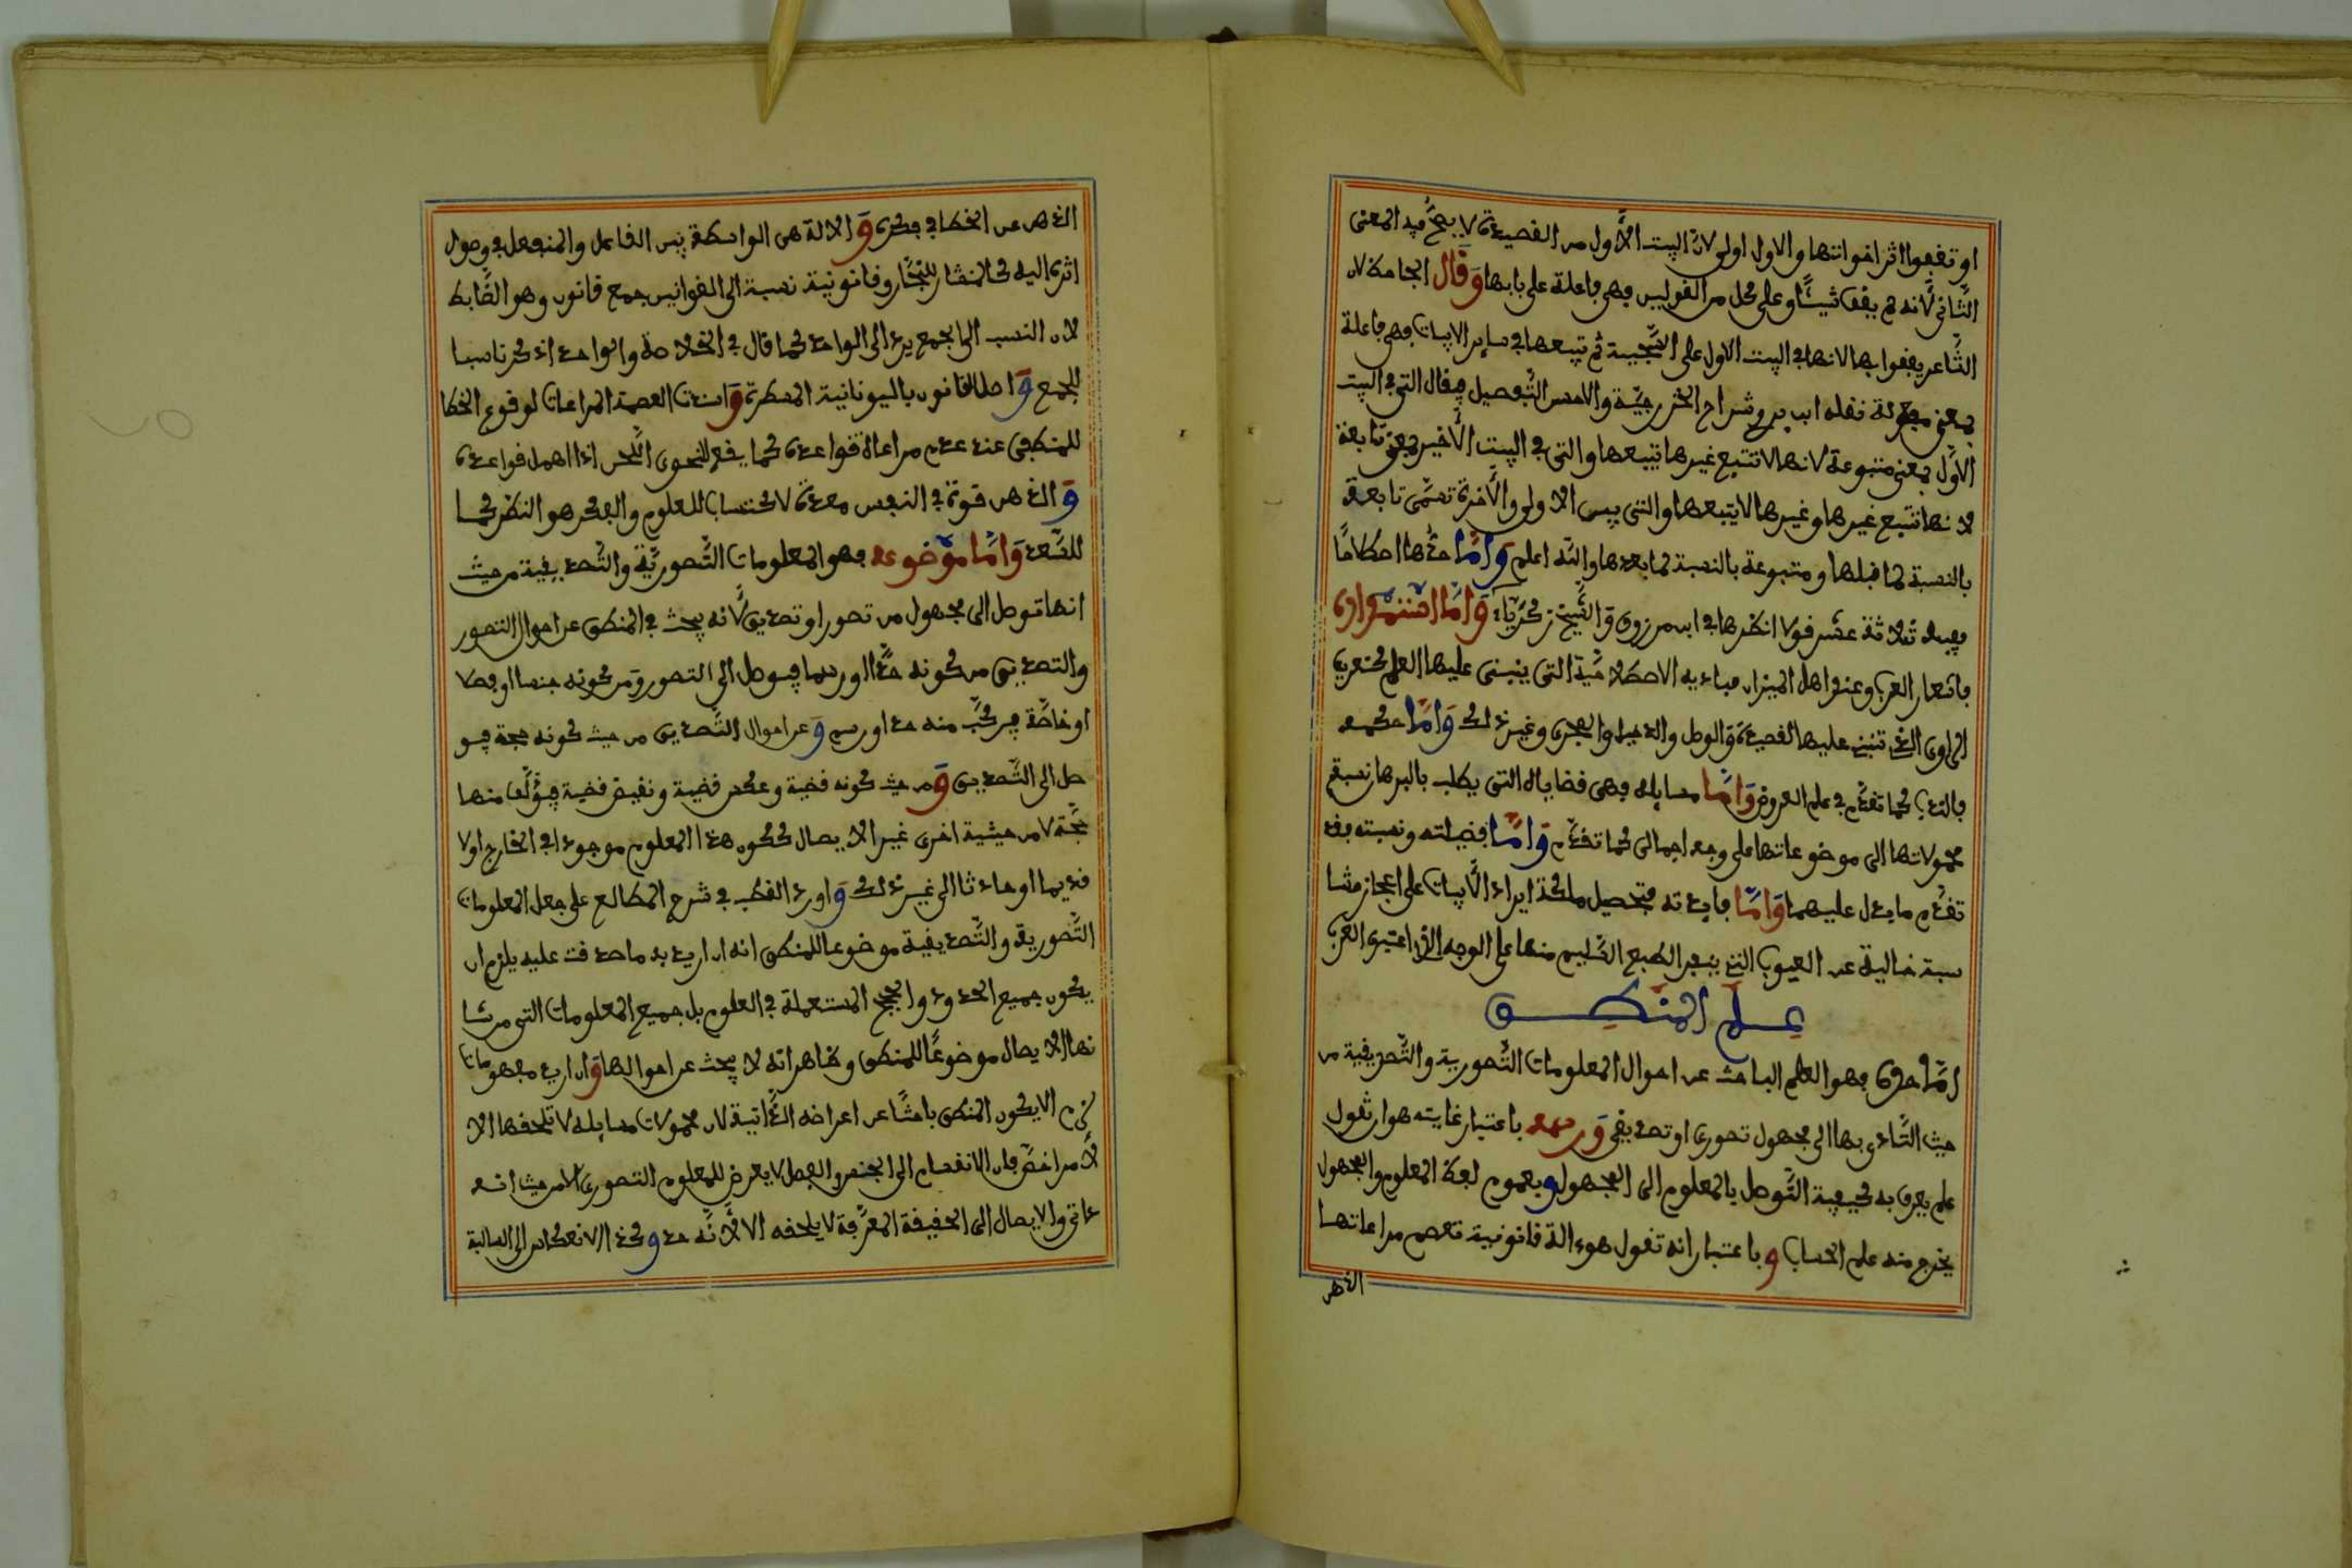 او تقفوا اثر اخواتها والاول اولى لان البيت الاول من القصيدة لا يصح فيه المعنى
الثاني لانه لم يقف شيئا وعلى كل من القولين فهي فاعلة على بابها وقال الجامة لان
الشاعر يقفوا بها لانها في البيت الاول على السجية ثم تتبعها في ساير الابيات فهي فاعلة
بمعنى مفعولة نقله ابن بري وشراح الخزرجية والاحسن التفصيل فيقال التي في البيت
الاول بمعنى متبوعة لانها لا تتبع غيرها يتبعها والتي في البيت الاخير بمعنى تابعة
لانها تتبع غيرها وغيرها لا يتبعها والتي بين الاولى والاخرة تسمى تابعة
بالنسبة لما قبلها ومتبوعة بالنسبة لما بعدها والله اعلم واما حدها اصطلاحا
ففيه ثلاثة عشر قولا انظرها في ابن مرزوق والشيخ زكرياء واما استمداده
فاشعار العرب وعند اهل الميزان مباديه الاصطلاحية التي ينبني عليها العلم كتعريف
الراوي الذي تنبني عليها القصيدة والوصل والدخيل والمجرى وغير ذلك واما حكمه
فالندب كما تقدم في علم العروض واما مسايله فهي قضاياه التي يطلب بالبرهان نسبة
محمولاتها الى موضوعاتها على وجه اجمالي كما تقدم واما فضيلته ونسبته فقد
تقدم ما يدل عليهما واما فايدته فتحصيل ملكة ايراد الابيات على اعجاز متنا
سبة خالية عن العيوب التي ينفر الطبع السليم منها على الوجه الذي اعتبره العرب
علم المنطق
اما حده فهو العلم الباحث عن احوال المعلومات التصورية والتصديقية من
حيث التادي بها الى مجهول تصوري او تصديقي ورسمه باعتبار غايته هو ان تقول
علم يعرف به كيفية التوصل بالمعلوم الى المجهول وبعموم لفظ المعلوم والمجهول
يخرج منه علم الحساب وباعتبار انه تقول هو ءالة قانونية تعصم مراعاتها
الذهن
الذهن عن الخطا في فكره والالة هي الواسطة بين الفاعل والمنفعل في وصول
اثره اليه كالمنشار للنجار وقانونية نسبة الى القوانين جمع قانون وهو الضابط
لان النسب الى الجمع يرد الى الواحد كما قال في الخلاصة والواحد اذكر ناسبا
للجمع واصل القانون باليونانية المسطرة واسندت العصمة للمراعات لوقوع الخطا
للمنطقي عند عدم مراعاة قواعده كما يقع للنحوي اللحن اذا اهمل قواعده
والذهن قوة في النفس معدة لاكتساب للعلوم والفكر هو النظر كما
للسعد واما موضوعه فهو المعلومات التصورية والتصديقية من حيث
انها توصل الى مجهول من تصور او تصديق لانه يبحث في المنطق عن احوال التصور
والتصديق من كونه حدا او رسما فيوصل الى التصور ومن كونه جنسا او فصلا
او خاصة فيركب منه حد او رسم وعن احوال التصديق من حيث كونه حجة فيو
صل الى التصديق ومن حيث كونه قضية وعكس قضية ونقيض قضية فيؤلف منها
حجة لا من حيثية اخرى غير الايصال ككون هذا المعلوم موجودا في الخارج اولا
قديما او حادثا الى غير ذلك واورد القطب في شرح المطالع على جعل المعلومات
التصورية والتصديقية موضوعا للمنطق انه ان اريد به ما صدقت عليه يلزم ان
يكون جميع الحدود والحجج المستعملة في العلوم بل جميع المعلومات التي من شا
نها الايصال موضوعا للمنطق وظاهر انه لا يبحث عن احوالها وان اريد مفهوماتها
لزم الا يكون المنطق باحثا عن اعراضه الذاتية لان محمولات مسايله لا تلحقها الا
لامر اخص فان الانقسام الى الجنس والفصل لا يعرض للمعلوم التصوري الا من حيث انه
ذاتي والايصال الى الحقيقة المعرفة لا يلحقه الا لانه حد وكذا الانعكاس الى السالبة